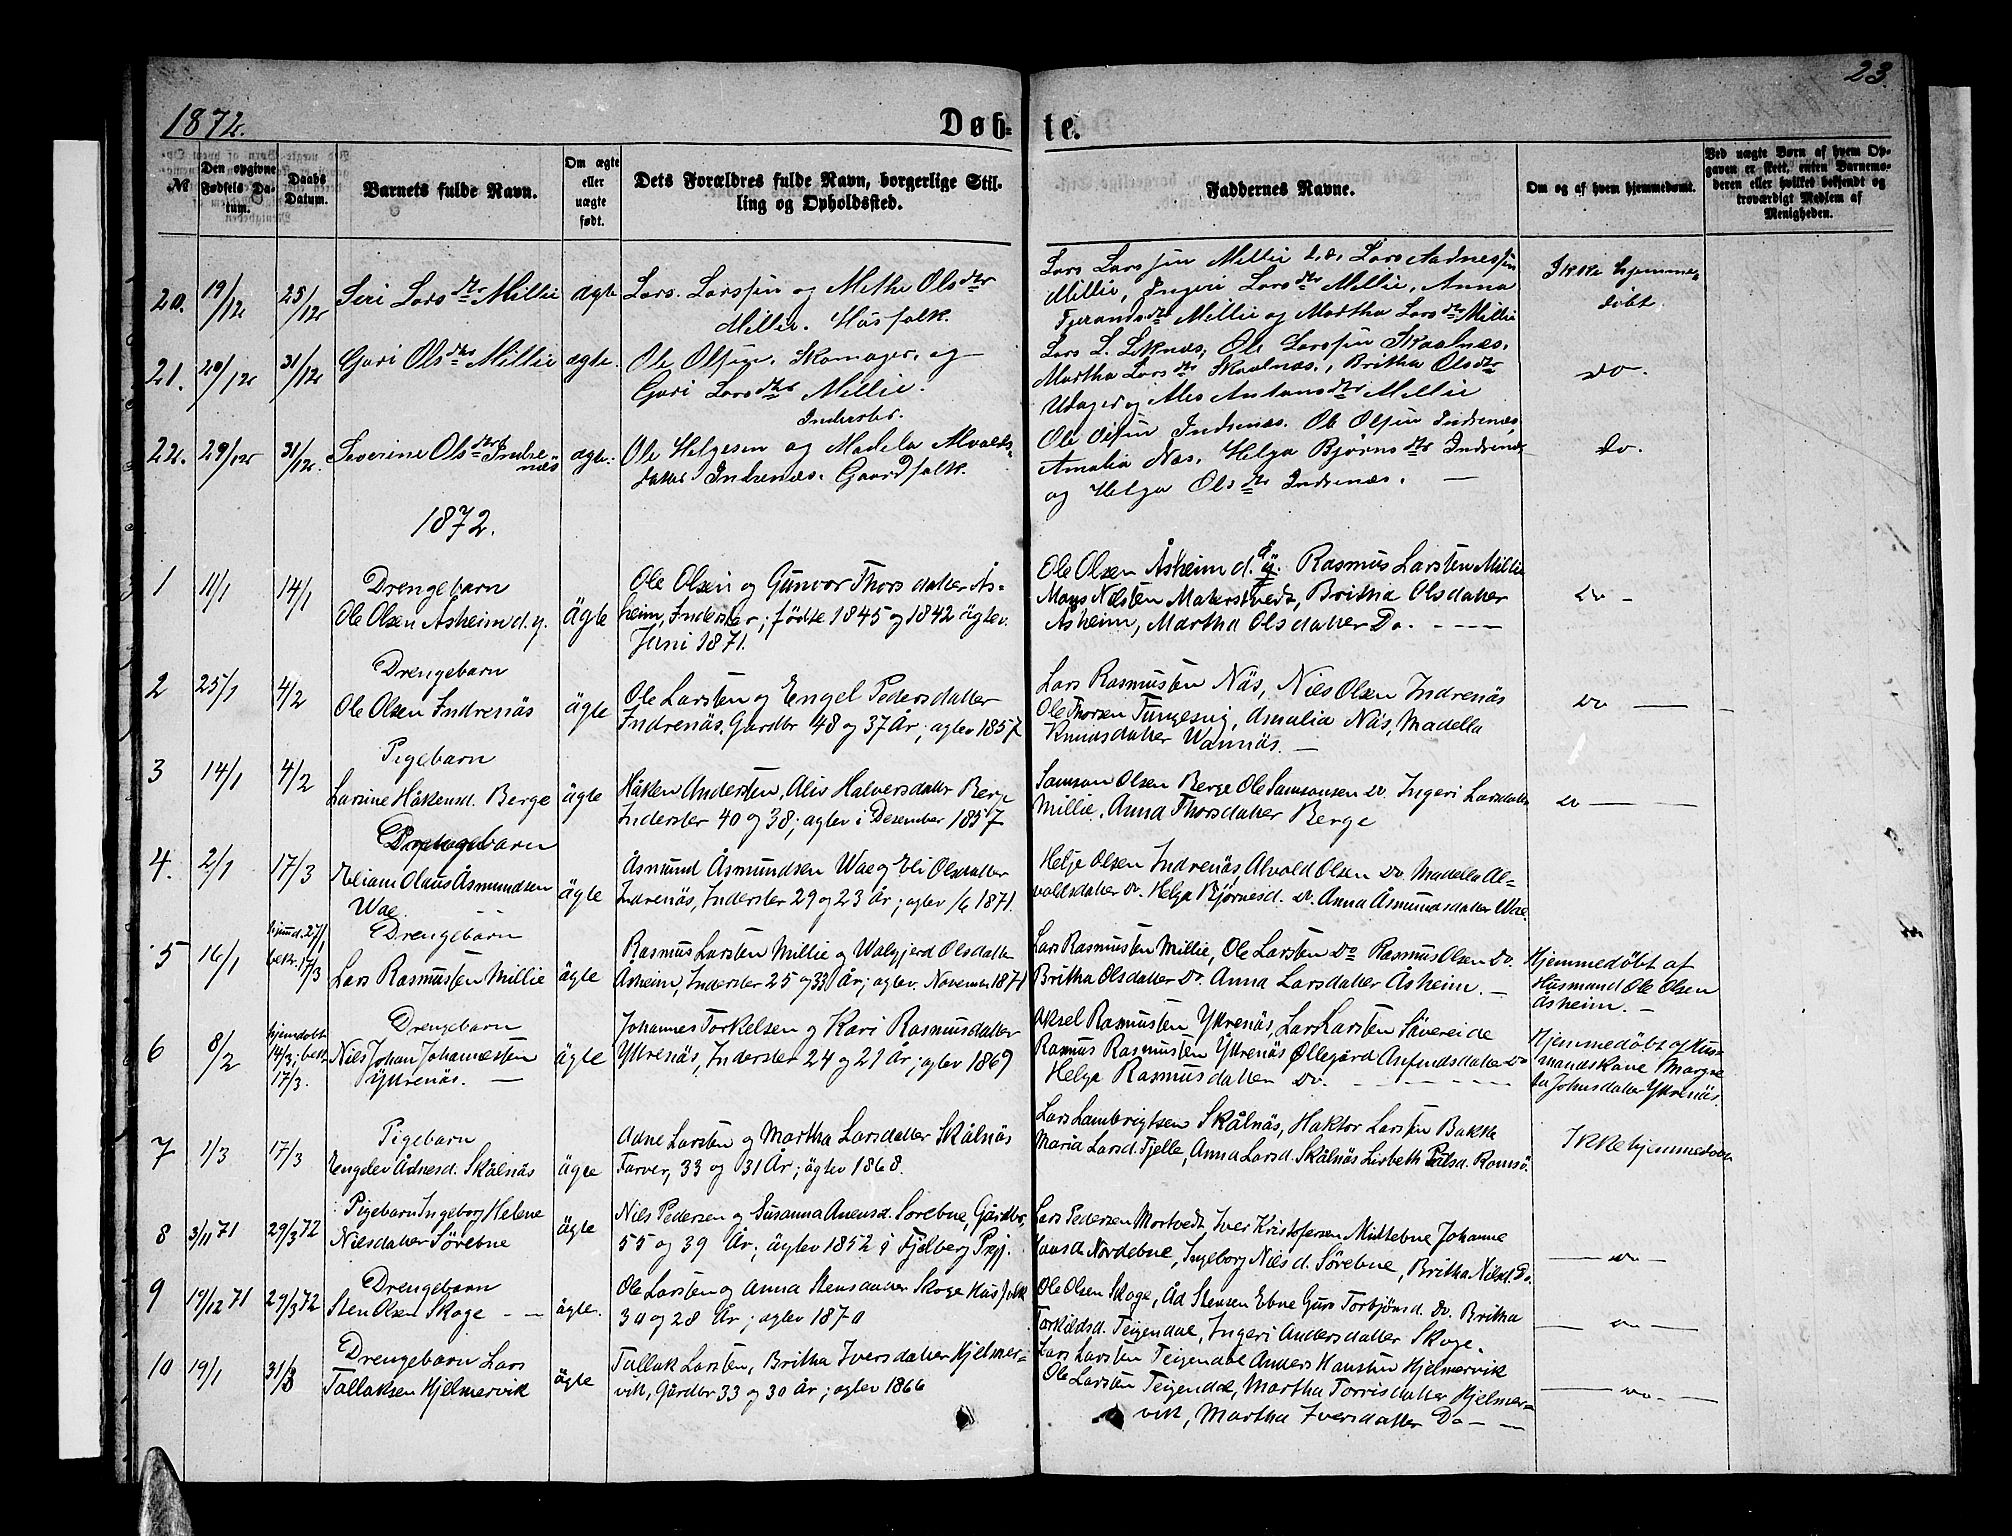 23.
1872.
Døb-
te.
№
Den opgivne Fødsels Da-tum.
Daabs Datum.
Barnets fulde Navn.
Om ægte eller uægte født.
Dets Forældres fulde Navn, borgerlige Stil-
ling og Opholdssted.
Faddernes Navne.
Om og af hvem hjemmedøbt.
Ved uægte Børn af hvem Op-
gaven er skeet, enten Barnemo-
deren eller hvilket bekjendt og
troværdigt Medlem af
Menigheden.
20. 19/12 25/12 Seri Lars dtr Millie ægte Lars Larssen og Methe Ols dtr
Millie. Husfolk.
Lars Larssen Millie d.æ. Lars Aadnessen
Millie, Ingeri Lars dtr Millie, Anna
Tjerands dtr Millie og Martha Lars dtr Millie
Ikke hjemme-
døbt.
21. 20/12 31/12 Guri Ols dtr Millie ægte. Ole Olsen. Skomager. og
Guri Lars dtr Millie.
Inderster.
Lars L. Eknæs, Ole Larssen Skaalnæs.
Martha Lars dtr Skaalnæs., Britha Ols dtr
og Alis dtr Millie
Do.
22. 29/12 31/12. Severine Ols dtr Indre-
næs ægte. Ole Helgesen og Madela Alvolds-
datter Indrenæs. Gaardfolk.
Ole Olsen Indrenæs. Ole Olsen Indrenæs,
Amalia Næs, Helga Bjørns dtr Indrenæs
og Helga Ols dtr Indrenæs. —
Do.
1872.
1 11/1 14/1 Drengebarn
Ole Olsen Åsheim d. y. ägte
Ole Olsen og Gunvor Thorsdatter Ås-
heim, Inderster; födte 1845 og 1842 ägtev.
Juni 1871.
Ole Olsen Åsheim d. y. Rasmus Larsten Millie
Mons Nilsten Materstvedt, Britha Olsdatter
Åsheim, Martha Olsdatter Do. - - - -
Do -
2 25/1 4/2 Drengebarn
Ole Olsen Indrenäs ägte
Ole Larsten og Engel Pedersdatter
Indrenäs, Gardbr 48 og 37 År; ägtev 1857
Lars Rasmusten Näs, Niels Olsen Indrenäs
Ole Thorsen Tungesvig, Amalia Näs, Madella
Knudsdatter Wannäs. —
Do — —
3 14/1 4/2 Pigebarn
Larsine Håkensd. Berge ägte
Håken Andersten, Aliv Halversdatter Berge
Inderster 40 og 38; ägtev i Desember 1857
Samson Olsen Berge Ole Samsonsen Do. Ingeri Larsdatter
Millie, Anna Thorsdatter Berge
Do — —
4. 2/1 17/3 Drengebarn
Eliam Olaus Åsmundsen
Wae. ägte
Åsmund Åsmundsen Wae og Eli Olsdatter
Indrenäs, Inderster 29 og 23 år; ägtev /6 1871.
Helje Olsen Indrenäs, Alvold Olsen Do. Madella Al-
voldsdatter Do. Helga Björnesd. Do. Anna Åsmundsdatter Wae.
5 16/1 hjemd. 27/1
bekr. 17/3 Drengebarn
Lars Rasmusten Millie ägte
Rasmus Larsten Millie og Walgjerd Olsdatter
Åsheim, Inderster 25 og 33 år; ägtev. November 1871
Lars Rasmusten Millie, Ole Larsten Do Rasmus Olsen Do.
Britha Olsdatter Do. Anna Larsdatter Åsheim. —
Hjemmedöbt af
Husmand Ole Olsen
Åsheim. —
6 8/2 hjemdöbt
14/3; bekr
17/3. Drengebarn
Niels Johan Johannesten
Yttrenäs. — ägte
Johannes Torkelsen og Kari Rasmusdatter
Yttrenäs, Inderster 24 og 21 år; ägtev 1869
Aksel Rasmusten Yttrenäs, Lars Larsten Sävereide
Rasmus Rasmusten Yttrenäs Öllegård Anfindsdatter Do
Helga Rasmusdatter Do. - - - - -
Hjemmedöbt af Hus-
mandskone Margre-
ta Johnsdatter Yttrenäs.
7 1/3 17/3 Pigebarn
Engelev Ådnesd. Skålnäs ägte
Adne Larsten og Martha Larsdatter Skålnäs
Farver, 33 og 31 År; ägtev 1868.
Lars Lambrigtsen Skålnäs, Haktor Larsten Bakke
Maria Larsd. Fjelle, Anna Larsd. Skålnäs Lisbeth Pålsd. Romsö.
Ikke hjemmedöbt
8 3/11 71 29/3 72 Pigebarn Ingeborg Helene
Nielsdatter Sörebne ägte
Niels Pedersen og Susanna Anensd. Sörebne, Gårdbr.
55 og 39 År; ägtev 1852 i Fjelberg Prgj.
Lars Pedersen Mortvedt, Iver Kristofersen Mittebne Johanne
Hansd. Nordebne, Ingeborg Niels d. Sörebne, Britha Nielsd. Do.
— Do —
9 19/12 71 29/3 72 Drengebarn
Sten Olsen Skoge — — ägte.
Ole Larsten og Anna Stensdatter Skoge Husfolk
30 og 28 År; ägtev 1870
Ole Olsen Skoge, Åd Stensen Ebne Guro Torbjönsd. Do. Britha
Torkildsd. Teigendal, Ingeri Andersdatter Skoge.
— Do —
10 19/1 31/3 Drengebarn Lars
Tollaksen Hjelmervik ägte
Tollak Larsten, Britha Iversdatter Hjelmer-
vik, Gårdbr 33 og 30 år; ägtev 1866
Lars Larsten Teigendal Anders Hansten Hjelmervik
Ole Larsten Teigendal, Martha Torrisdatter Hjelmer-
vik, Martha Iversdatter Do — —
— Do. —